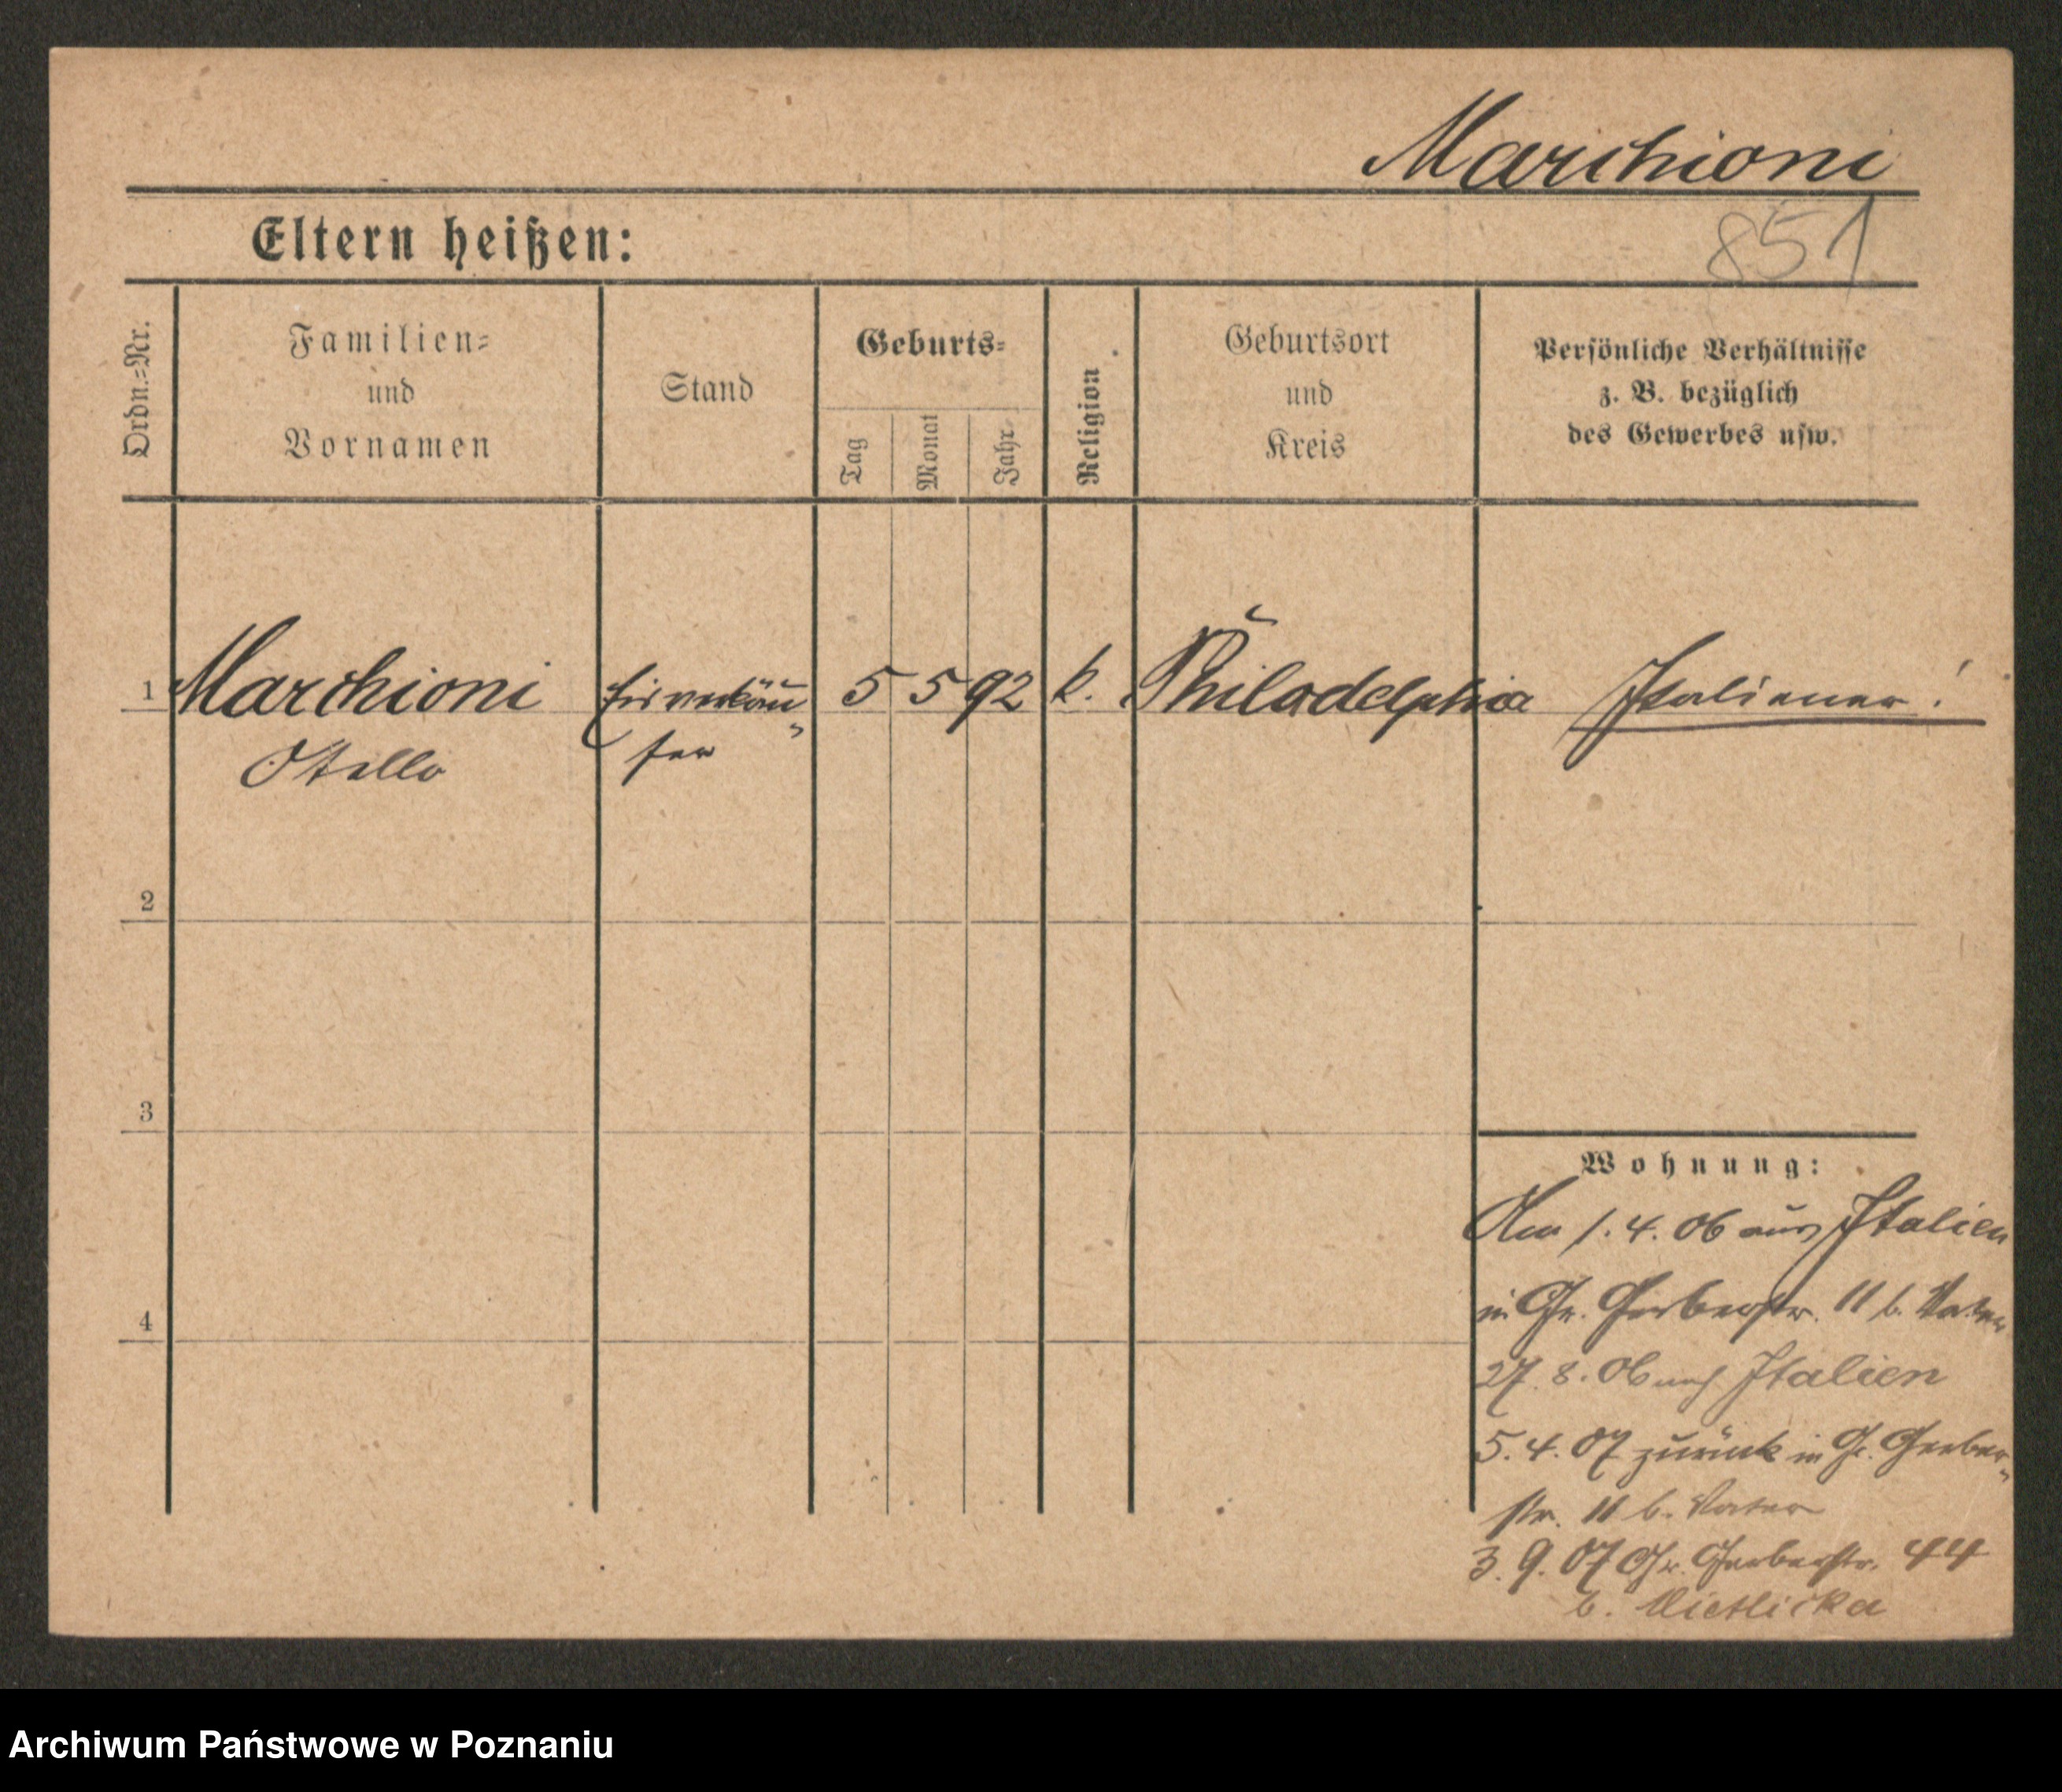 Marchioni
851
Eltern heißen:
Ordn.=Nr.
Familien=
und
Vornamen
Stand
Geburts=
Tag
Monat
Jahr
Religion
Geburtsort
und
Kreis
Persönliche Verhältnisse
z. B. bezüglich
des Gewerbes usw.
1 Marchioni Eisverkäu= 5 5 92 k. Philadelphia Italiener!
Otello fer
2
3
4
Wohnung:
Am 1.4.06 aus Italien
in Gr. Gerberstr. 11 b. Vater
27.8.06 nach Italien
5.4.07 zurück in Gr. Gerber=
str. 11 b. Vater
3.9.07 Gr. Gerberstr. 44
b.
Archiwum Państwowe w Poznaniu